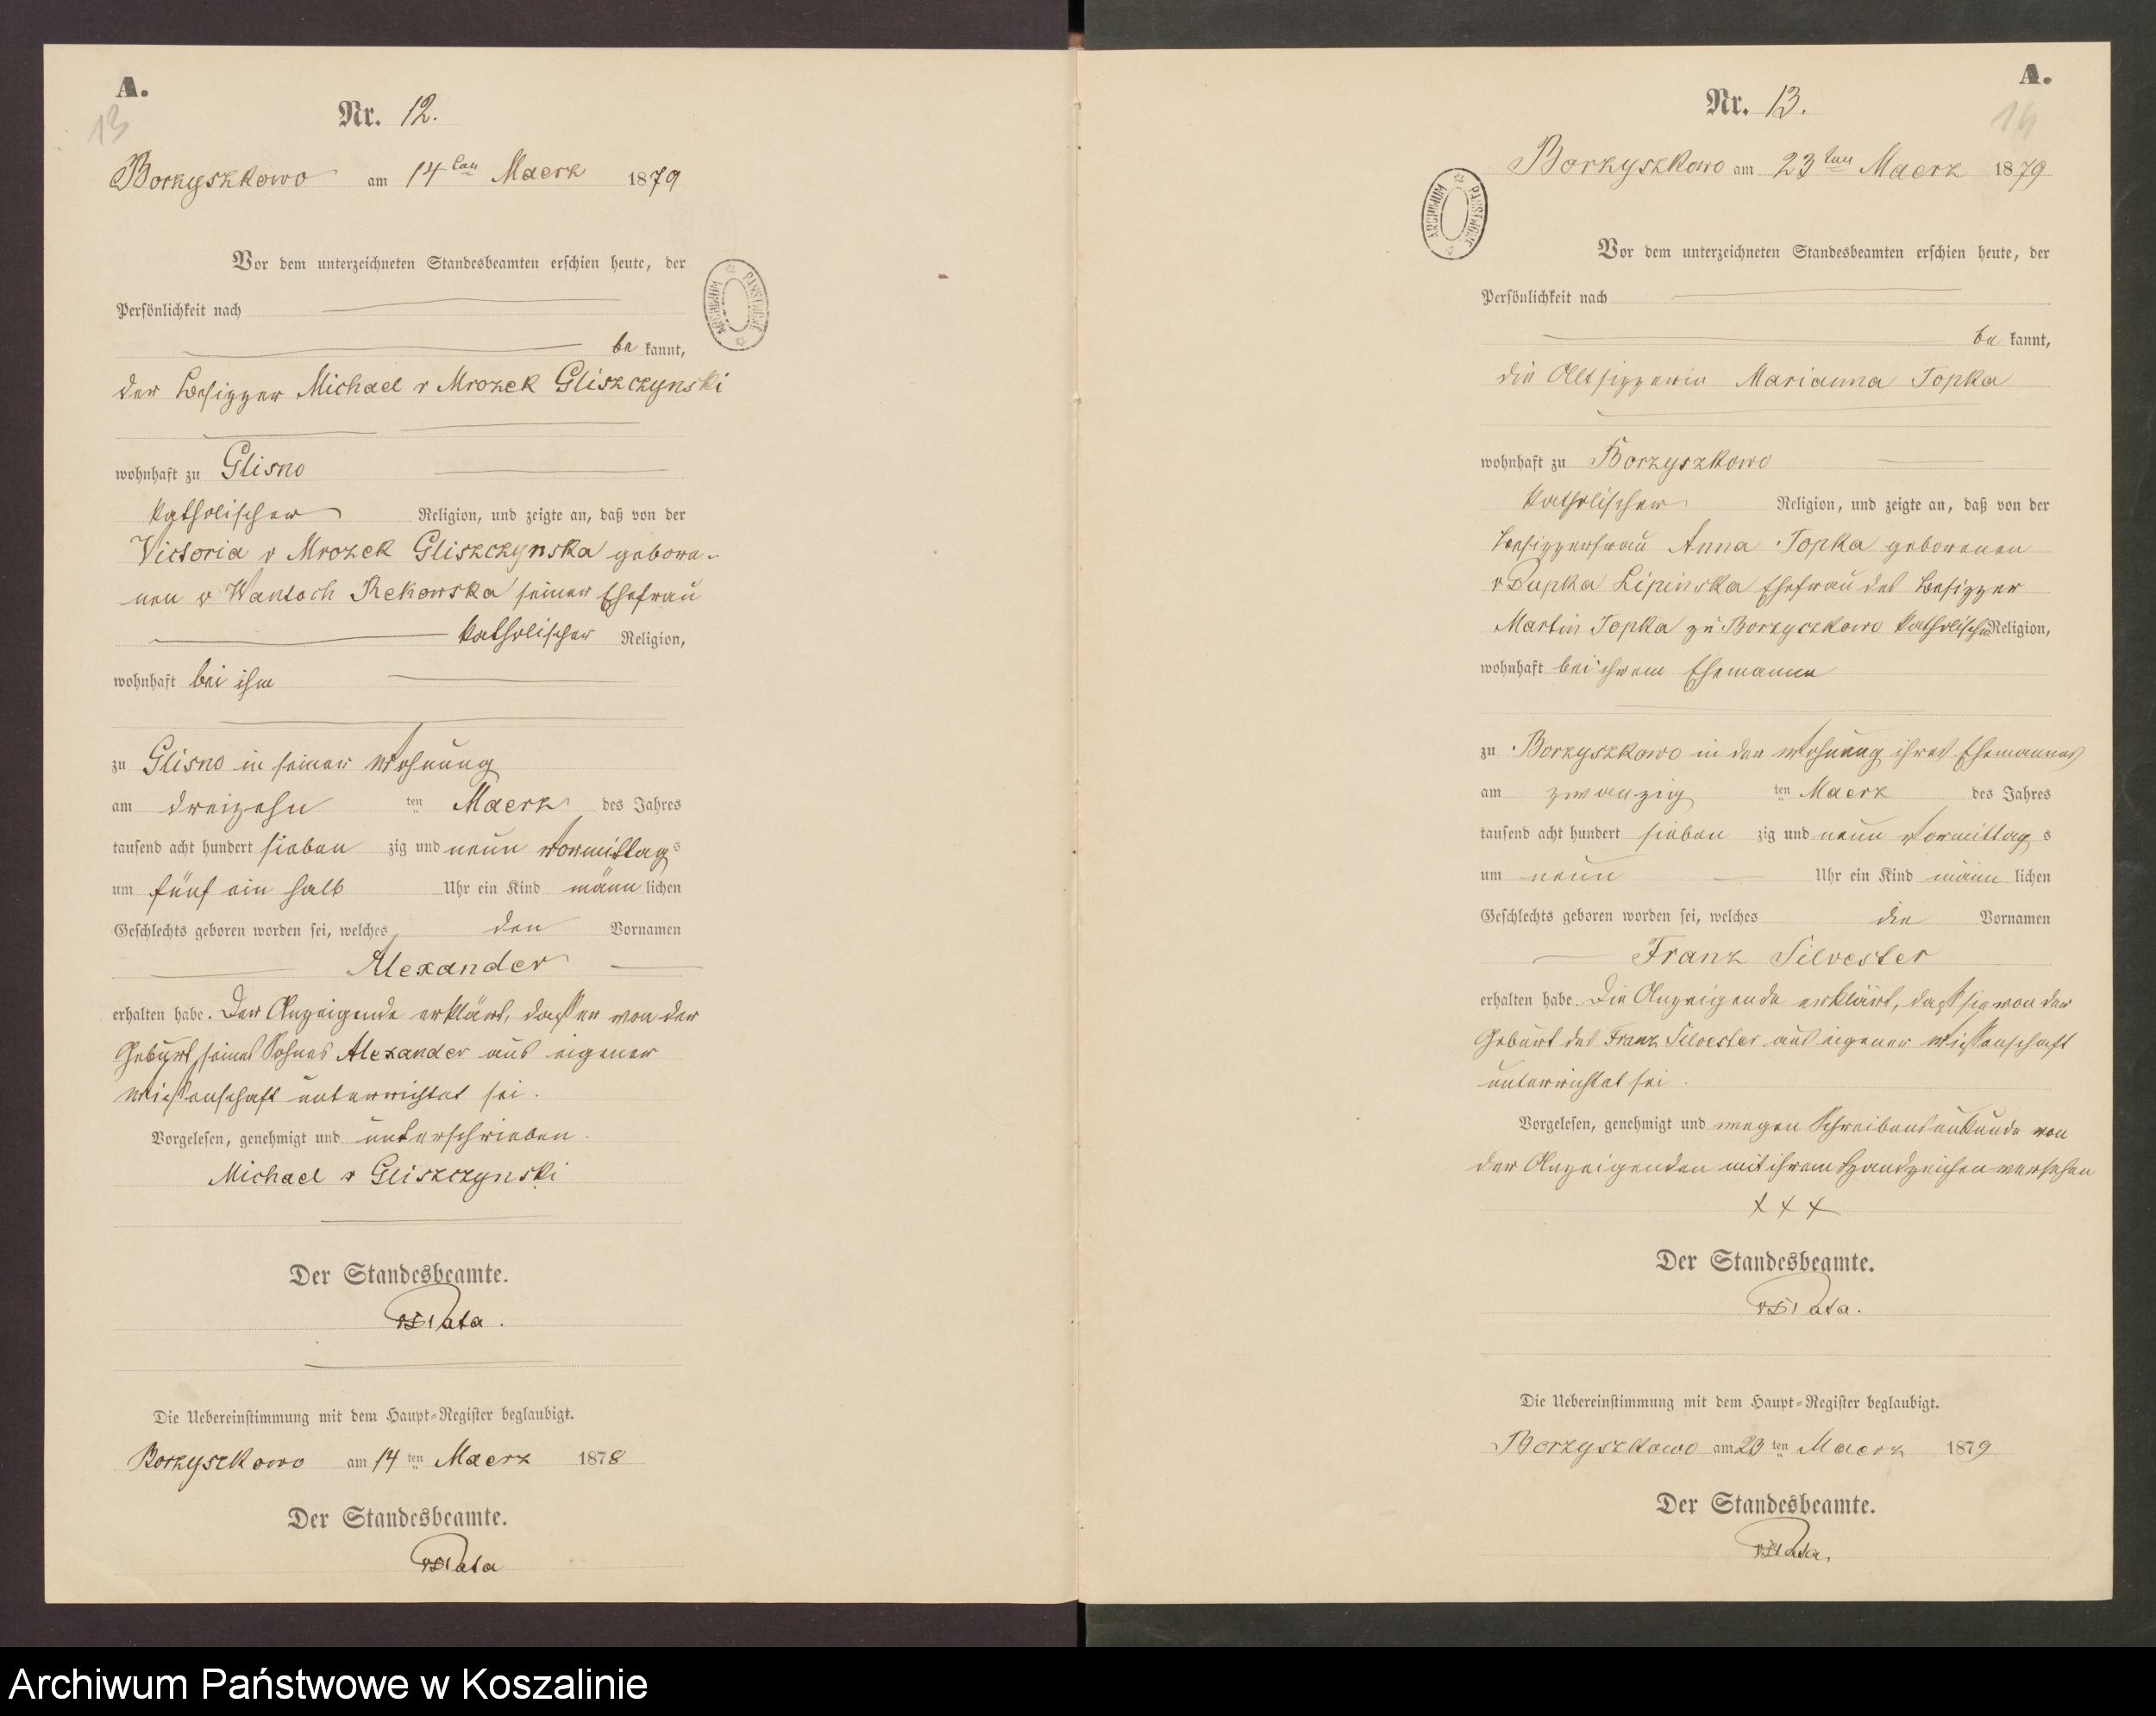 A.
13
Nr. 12.
Borzyszkowo am 14ten Maerz 1879
Vor dem unterzeichneten Standesbeamten erschien heute, der
Persönlichkeit nach
be kannt,
der Besizzer Michael v Mrozek Gliszczynski
wohnhaft zu Glisno
katholischer Religion, und zeigte an, daß von der
Victoria v Mrozek Gliszczynska gebore-
nen v Wantoch Rekowska seiner Ehefrau
katholischer Religion,
wohnhaft bei ihm
zu Glisno in seiner Wohnung
am dreizehn ten Maerz des Jahres
tausend acht hundert sieben zig und neun Vormittag s
um fünf ein halb Uhr ein Kind männ lichen
Geschlechts geboren worden sei, welches den Vornamen
Alexander
erhalten habe. Der Anzeigende erklärt, daß er von der
Geburt seines Sohnes Alexander aus eigener
Wißenschaft unterrichtet sei.
Vorgelesen, genehmigt und unterschrieben.
Michael v Gliszczynski
Der Standesbeamte.
ARCHIWUM PAŃSTWOWE
Die Uebereinstimmung mit dem Haupt-Register beglaubigt.
Borzyszkowo am 14 ten Maerz 1878
Der Standesbeamte.
A.
14
Nr. 13.
Borzyszkowo am 23ten Maerz 1879
ARCHIWUM PAŃSTWOWE
Vor dem unterzeichneten Standesbeamten erschien heute, der
Persönlichkeit nach
be kannt,
die Altsizzerin Marianna Topka
wohnhaft zu Borzyszkowo
katholischer Religion, und zeigte an, daß von der
Besizzerfrau Anna Topka geborenen
v Pupka Lipinska Ehefrau des Besizzer
Martin Topka zu Borzyszkowo katholischer Religion,
wohnhaft bei ihrem Ehemanne
zu Borzyszkowo in der Wohnung ihres Ehemannes
am zwanzig ten Maerz des Jahres
tausend acht hundert sieben zig und neun Vormittag s
um neun Uhr ein Kind männ lichen
Geschlechts geboren worden sei, welches die Vornamen
Franz Silvester
erhalten habe. Die Anzeigende erklärt, daß sie von der
Geburt des Franz Silvester aus eigener Wißenschaft
unterrichtet sei.
Vorgelesen, genehmigt und wegen Schreibensunkunde von
der Anzeigenden mit ihrem Handzeichen versehen
x x x
Der Standesbeamte.
Die Uebereinstimmung mit dem Haupt-Register beglaubigt.
Borzyszkowo am 23 ten Maerz 1879
Der Standesbeamte.
Archiwum Państwowe w Koszalinie